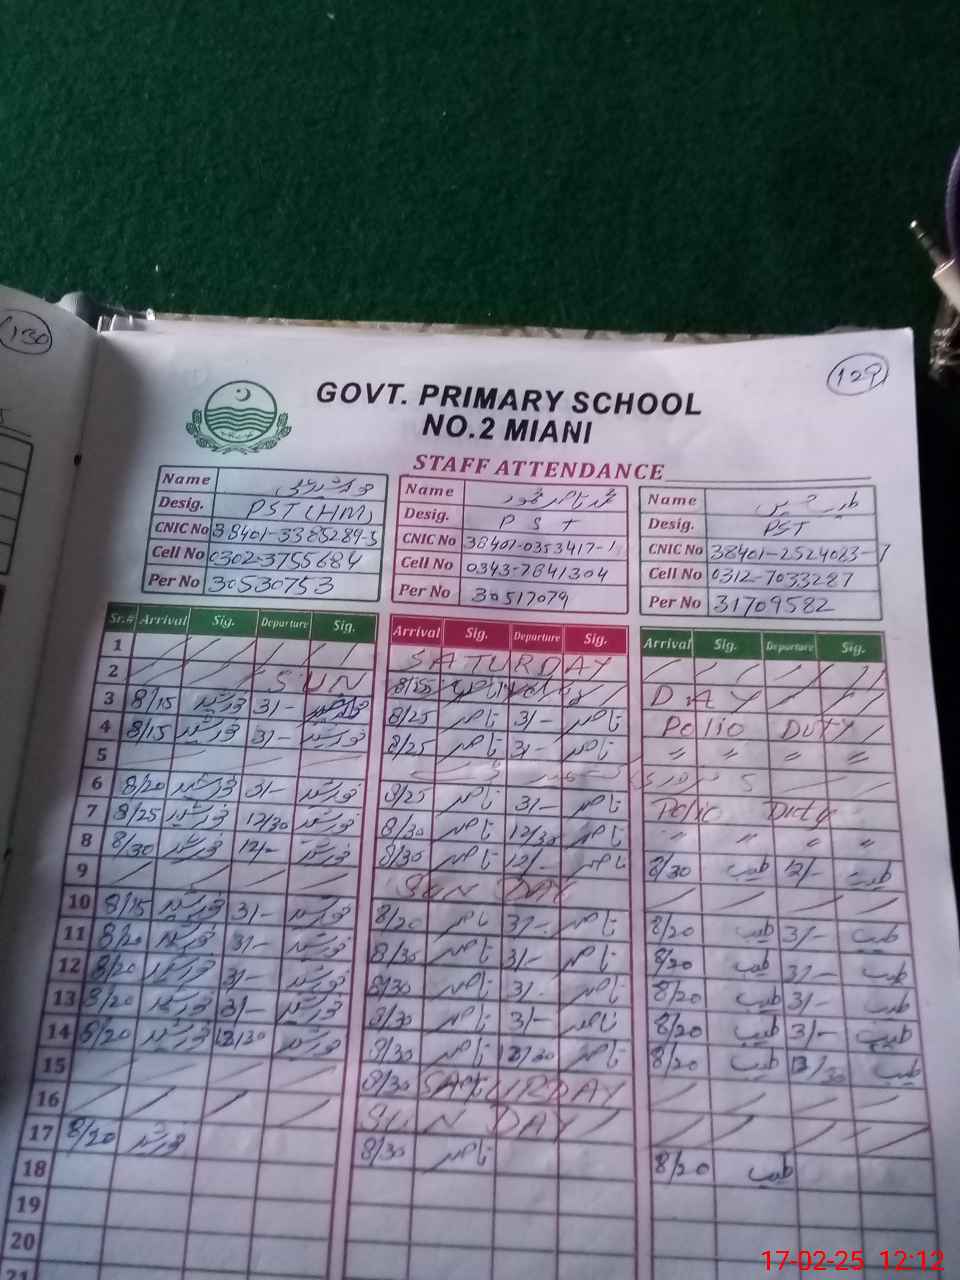 130
129
GOVT. PRIMARY SCHOOL
NO.2 MIANI
STAFF ATTENDANCE
Name خورشید Name محمد ناصر محمود Name طیب
Desig. PST (HM) Desig. P S T Desig. PST
CNIC No 38401-3385289-5 CNIC No 38401-0353417-1 CNIC No 38401-2524083-7
Cell No 0302-3755684 Cell No 0343-7841304 Cell No 0312-7033287
Per No 30530753 Per No 30517079 Per No 31709582
Sr.# Arrival Sig. Departure Sig. Arrival Sig. Departure Sig. Arrival Sig. Departure Sig.
1 SATURDAY
2 SUN DAY
3 8/15 خورشید 3/- 8/25 ناصر 3/- ناصر Polio DUTY
4 8/15 خورشید 3/- خورشید 8/25 ناصر 3/- ناصر " " " "
5 5
6 8/20 خورشید 3/- خورشید 8/25 ناصر 3/- ناصر Polio Duty
7 8/25 خورشید 12/30 خورشید 8/30 ناصر 12/30 ناصر " " " "
8 8/30 خورشید 12/- خورشید 8/30 ناصر 12/- ناصر 8/30 طیب 12/- طیب
9 SUN DAY
10 8/15 خورشید 3/- خورشید 8/20 ناصر 3/- ناصر 8/20 طیب 3/- طیب
11 8/20 خورشید 3/- خورشید 8/30 ناصر 3/- ناصر 8/20 طیب 3/- طیب
12 8/20 خورشید 3/- خورشید 8/30 ناصر 3/- ناصر 8/20 طیب 3/- طیب
13 8/20 خورشید 3/- خورشید 8/30 ناصر 3/- ناصر 8/20 طیب 3/- طیب
14 8/20 خورشید 12/30 خورشید 8/30 ناصر 12/30 ناصر 8/20 طیب 12/30 طیب
15 8/30 SATURDAY
16 SUN DAY
17 8/20 خورشید 8/30 ناصر 8/20 طیب
18
19
20
21
17-02-25 12:12